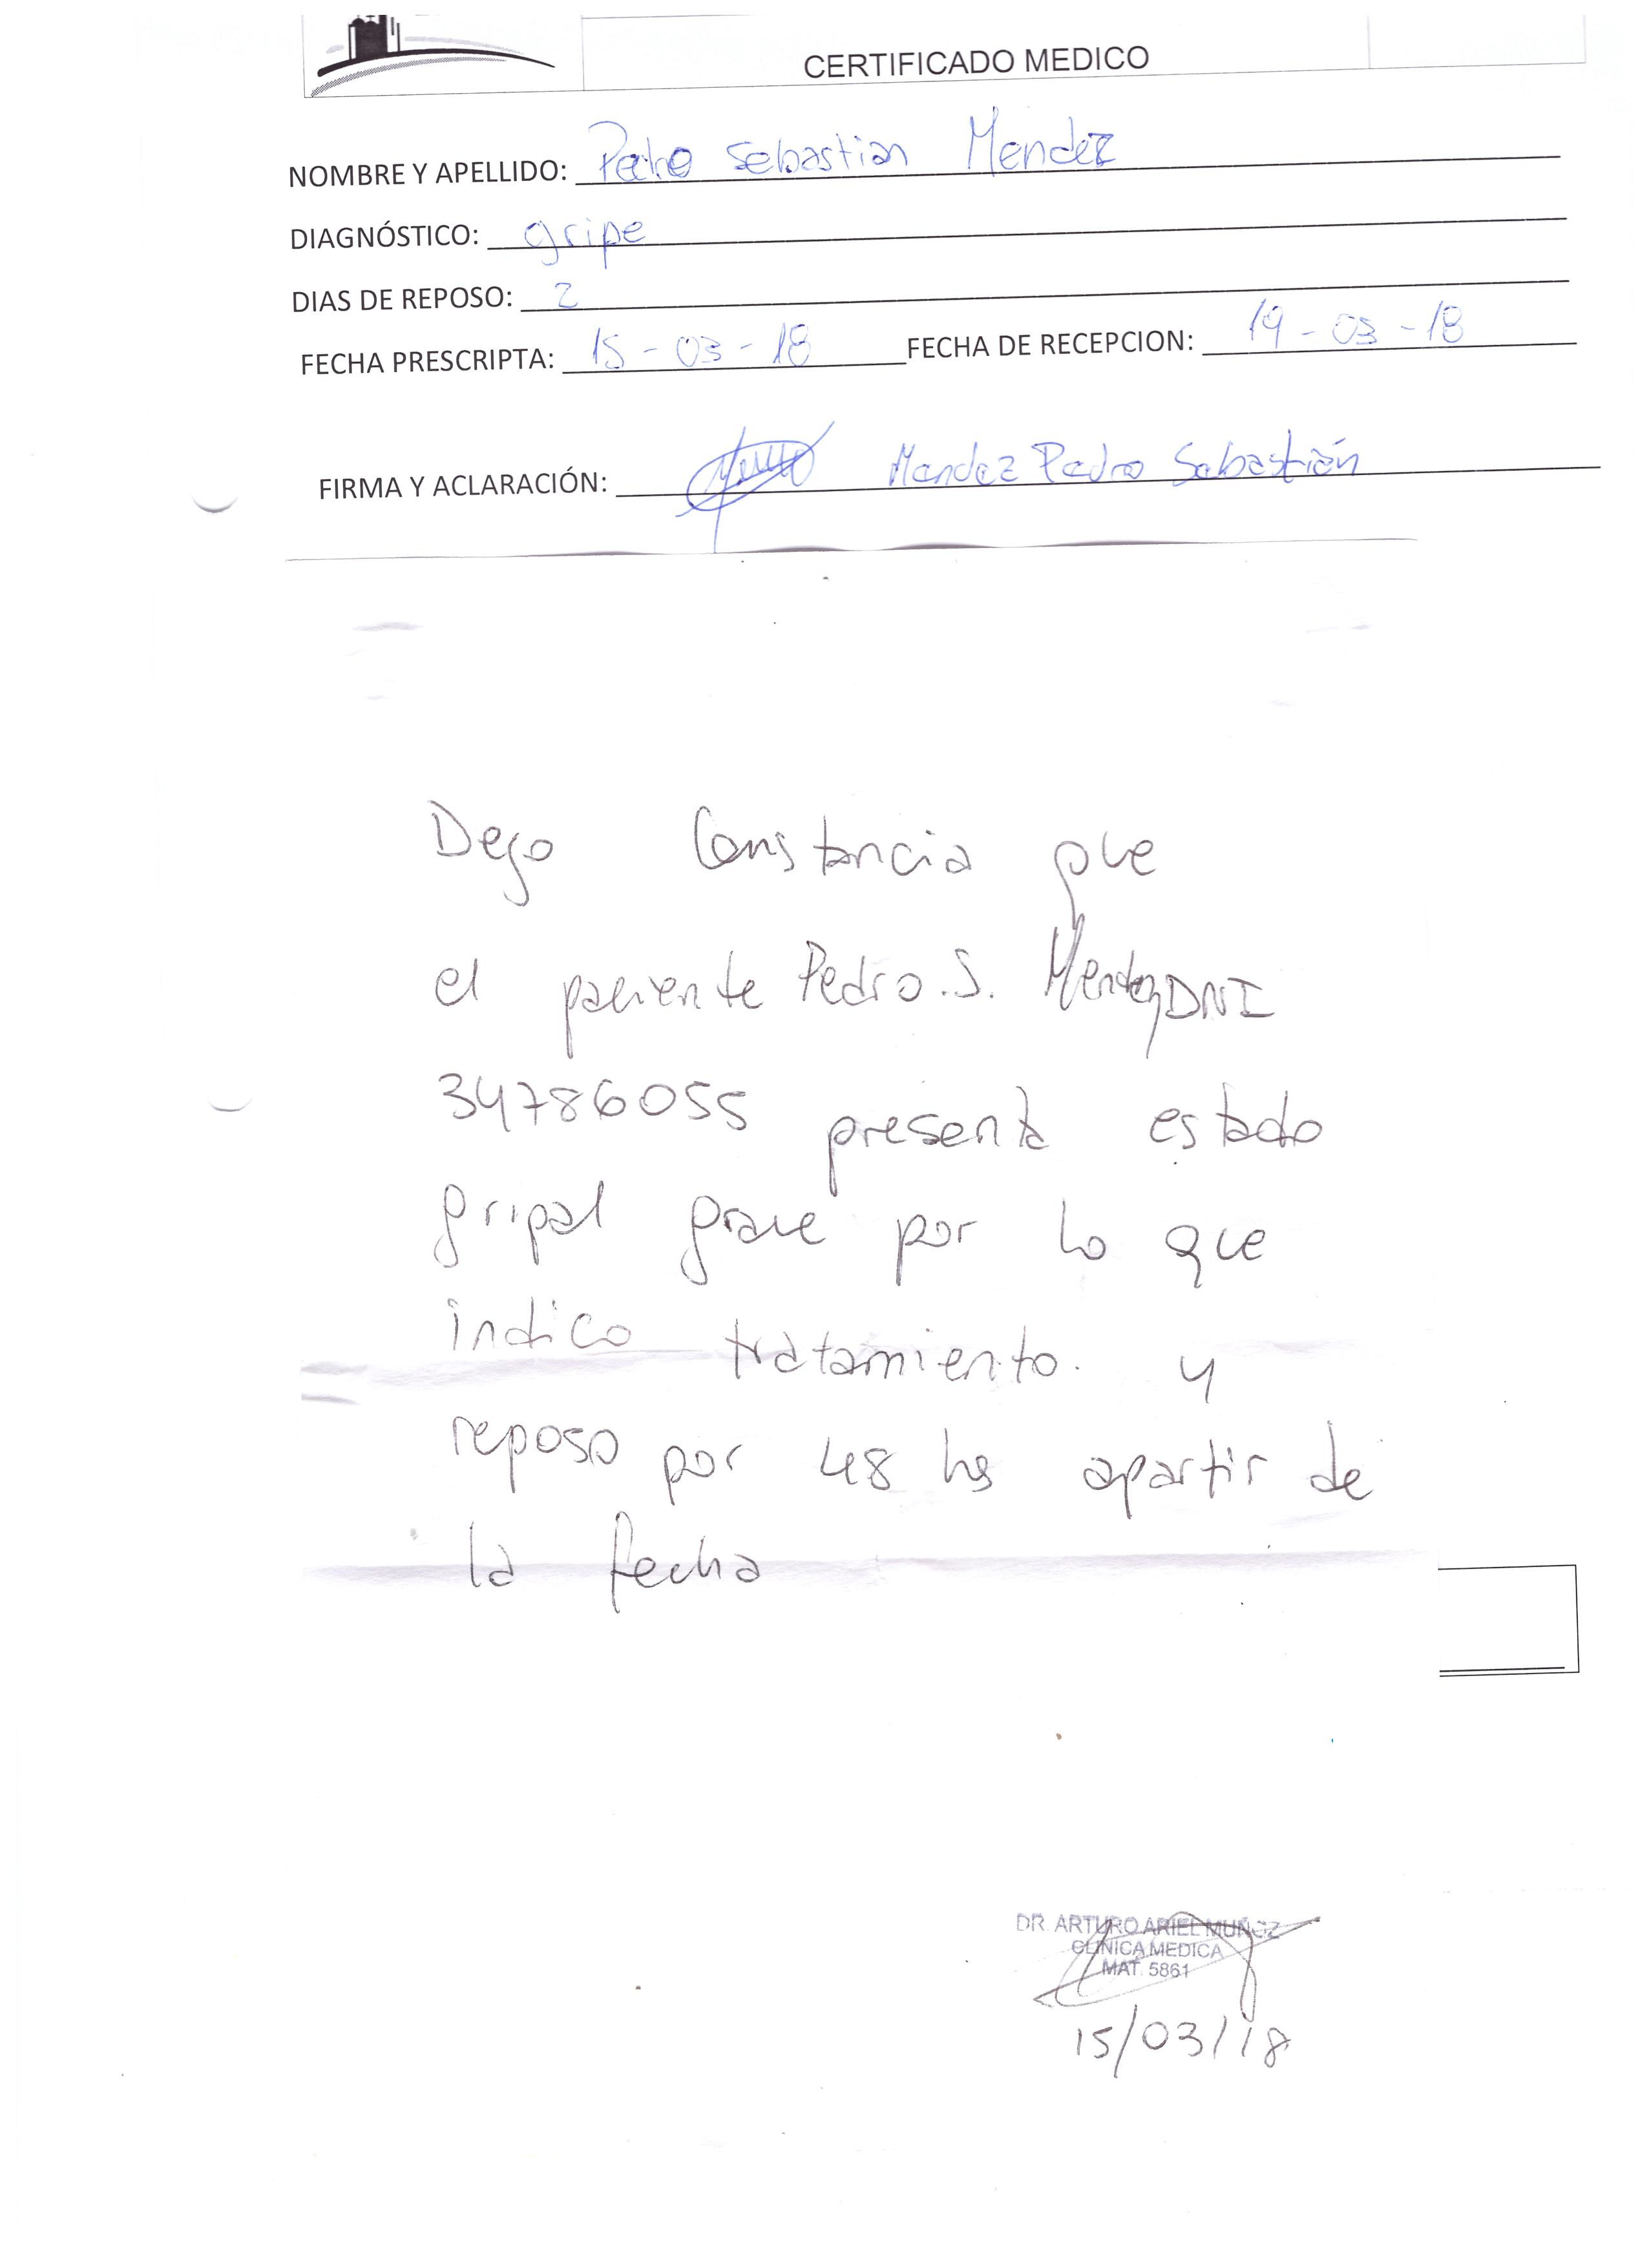 CERTIFICADO MEDICO
NOMBRE Y APELLIDO: Pedro Sebastian Mendez
DIAGNÓSTICO: gripe
DIAS DE REPOSO: 2
FECHA PRESCRIPTA: 15-03-18 FECHA DE RECEPCION: 19-03-18
FIRMA Y ACLARACIÓN: Mendez Pedro Sebastián
Dejo Constancia que
el paciente Pedro.S. Mendez DNI
34786055 presenta estado
gripal grave por lo que
indico tratamiento. y
reposo por 48 hs apartir de
la fecha
DR. ARTURO ARIEL MUÑOZ
CLINICA MEDICA
MAT. 5861
15/03/18